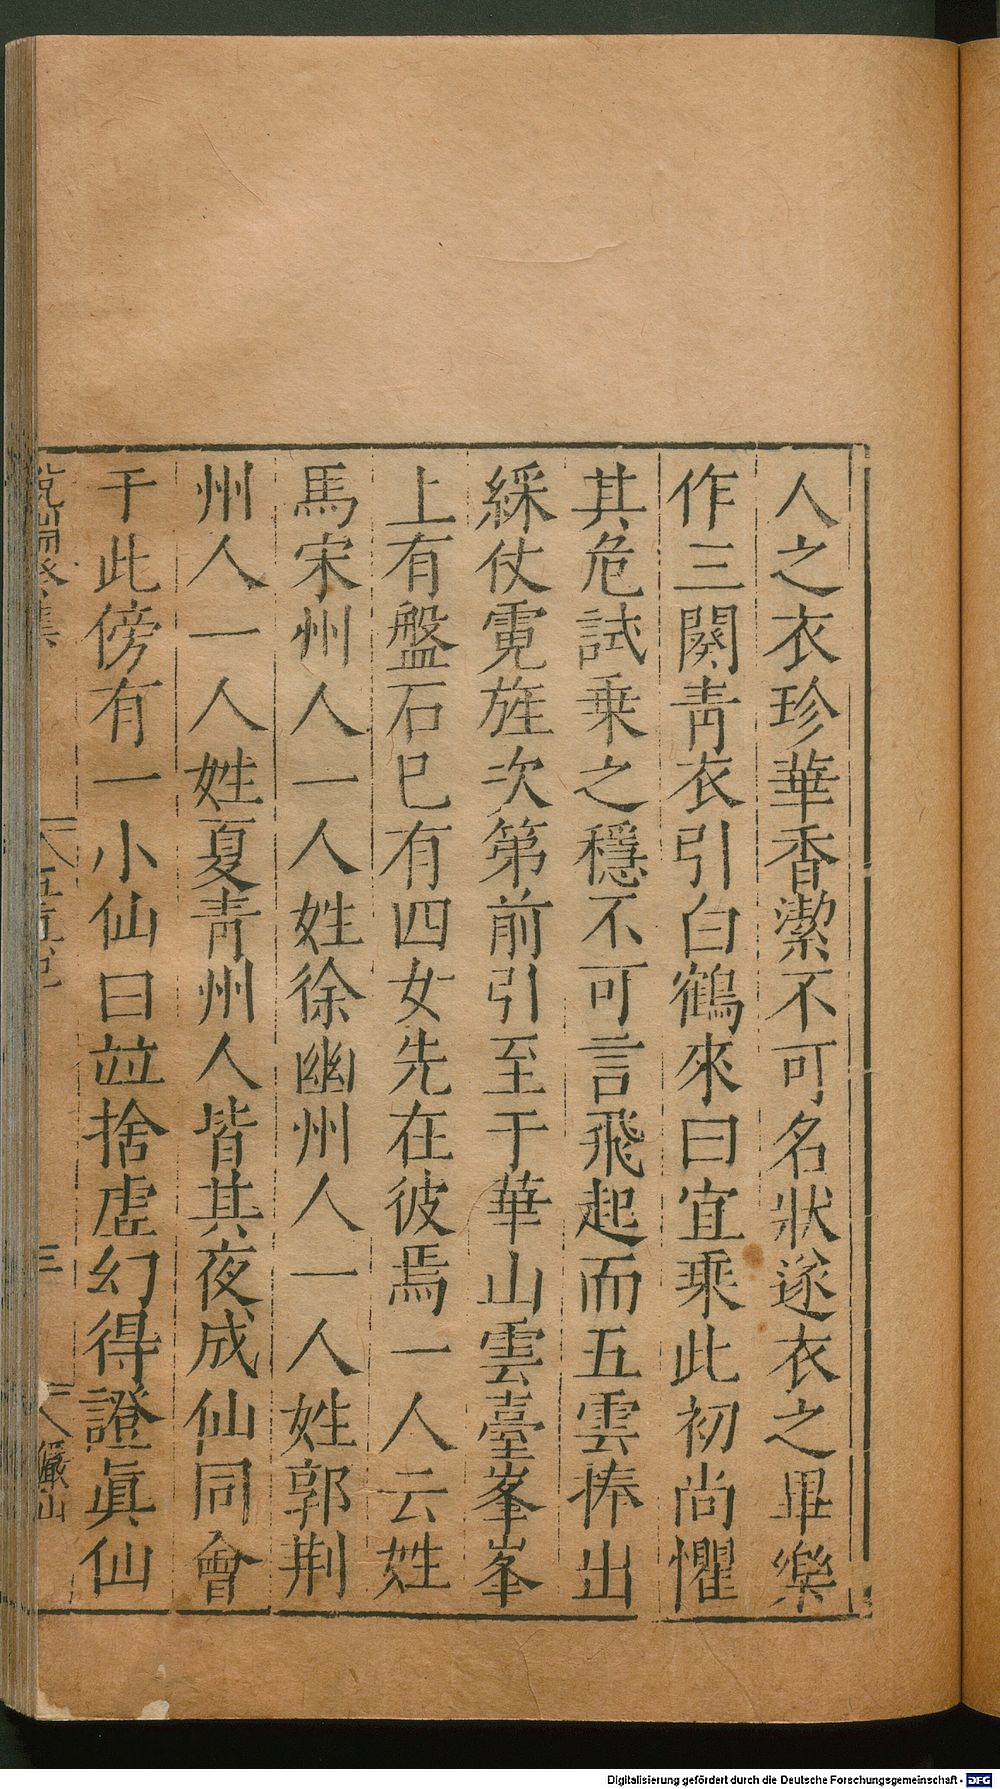 人之衣珍華香潔不可名狀遂衣之畢樂
作三闋青衣引白鶴來曰宜乘此初尚懼
其危試乘之穩不可言飛起而五雲捧出
綵仗霓旌次第前引至于華山雲臺峯峯
上有盤石已有四女先在彼焉一人云姓
馬宋州人一人姓徐幽州人一人姓郭荆
州人一人姓夏青州人皆其夜成仙同會
于此傍有一小仙曰並捨虛幻得證眞仙
三
儼山
Digitalisierung gefördert durch die Deutsche Forschungsgemeinschaft - DFG